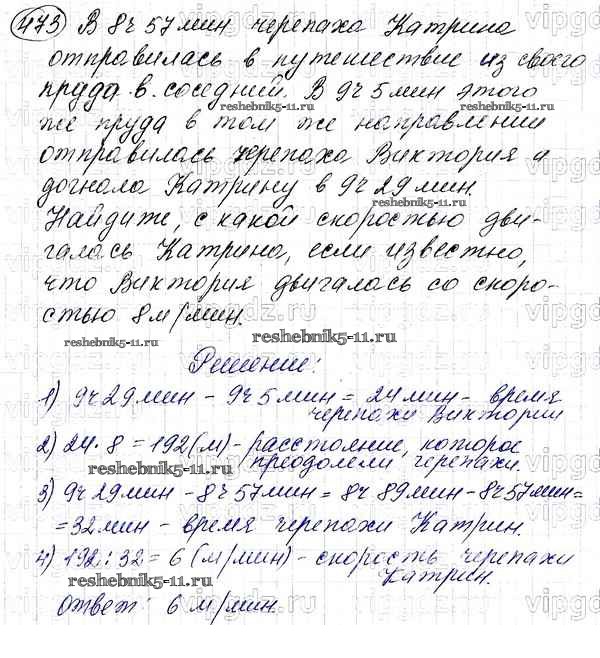 473 В 8ч 57 мин черепаха Катрина
отправилась в путешествие из своего
пруда в соседний. В 9ч 5 мин этого
reshebnik5-11.ru
же пруда в том же направлении
отправилась черепаха Виктория и
догнала Катрину в 9ч 29 мин.
Найдите, с какой скоростью дви-
галась Катрина, если известно,
что Виктория двигалась со скоро-
стью 8 м/мин.
reshebnik5-11.ru
reshebnik5-11.ru
Решение:
1) 9ч 29 мин - 9ч 5 мин = 24 мин - время
черепахи Виктории
2) 24 · 8 = 192 (м) - расстояние, которое
преодолели черепахи.
reshebnik5-11.ru
3) 9ч 29 мин - 8ч 57 мин = 8ч 89 мин - 8ч 57 мин =
= 32 мин - время черепахи Катрин.
4) 192 : 32 = 6 (м/мин) - скорость черепахи
Катрин.
reshebnik5-11.ru
Ответ: 6 м/мин.
vipgdz.ru